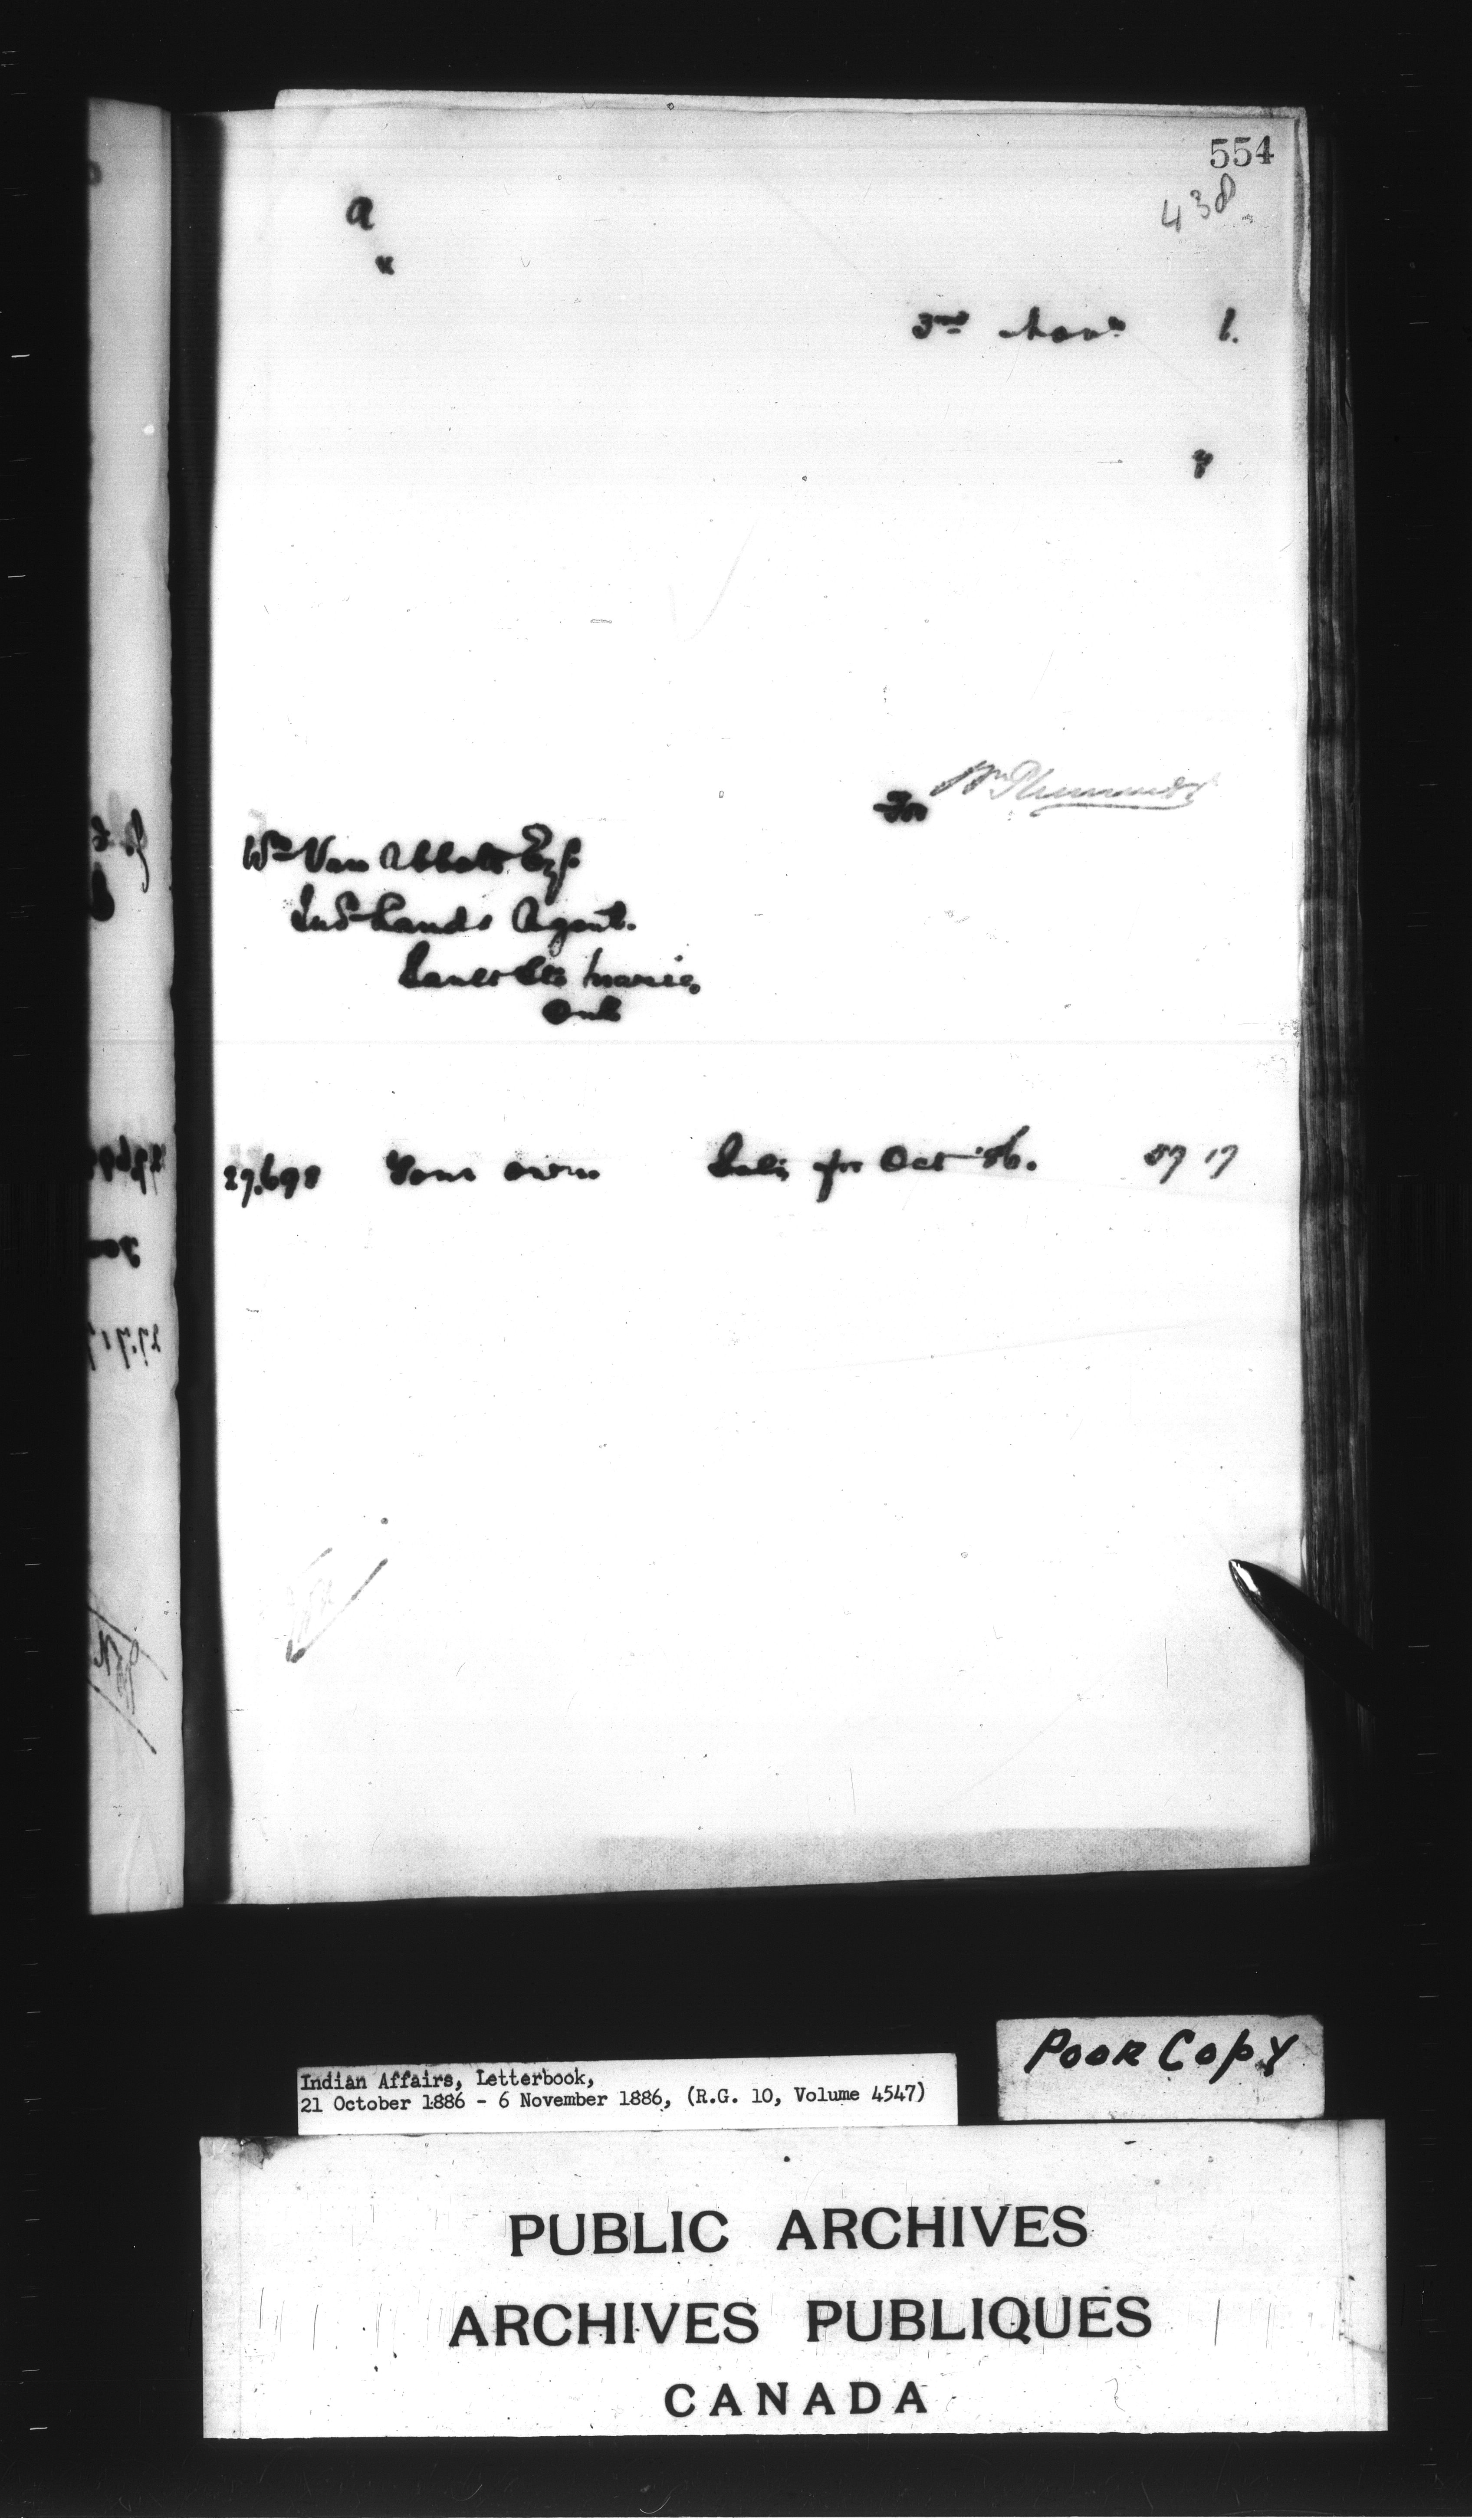 554
438
a
3rd Nov.
For Wm Plummer
Wm Van Abbott Esq.
Ind Lands Agent.
Sault Ste Marie.
Ont
27.698 Your own for Oct '86. 17
Poor Copy
Indian Affairs, Letterbook,
21 October 1886 - 6 November 1886, (R.G. 10, Volume 4547)
PUBLIC ARCHIVES
ARCHIVES PUBLIQUES
CANADA